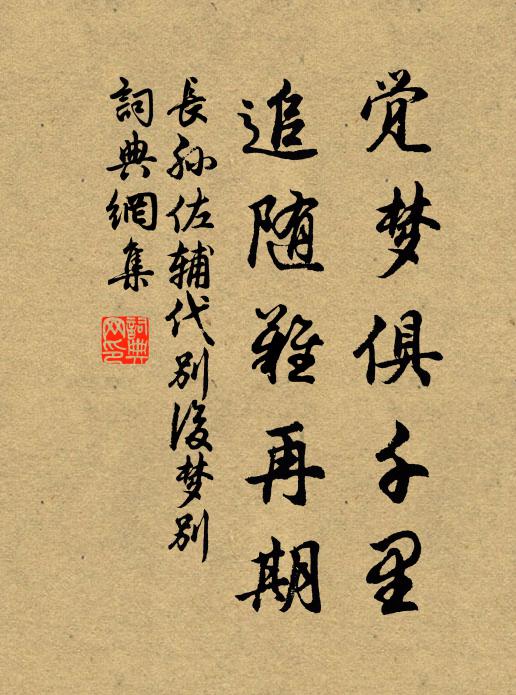 觉梦俱千里
追随难再期
長孙佐辅代别後梦别
詞典網集
詞典
网印